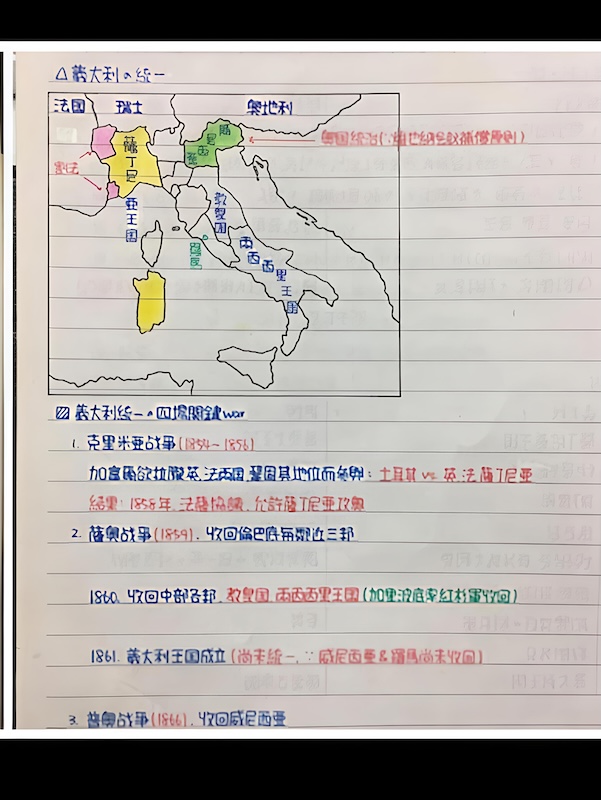 △義大利の統一
法国 瑞士 奧地利
薩丁尼亞王国
威尼西亞
奧国統治(∵維也納会议補償原則)
割法
教皇国
羅馬
兩西西里王國
▨ 義大利統一の四場関鍵war
1. 克里米亞战爭(1854~1856)
加富爾欲拉攏英.法両国,鞏固其地位而参與:土耳其 vs. 英.法.薩丁尼亞
結果:1858年,法薩協議,允許薩丁尼亞攻奧
2. 薩奧战爭(1859).收回倫巴底与鄰近三邦
1860.收回中部各邦.教皇国.兩西西里王國(加里波底率紅杉軍收回)
1861.義大利王国成立(尚未統一,∵威尼西亞&羅馬尚未收回)
3. 普奧战爭(1866).收回威尼西亞